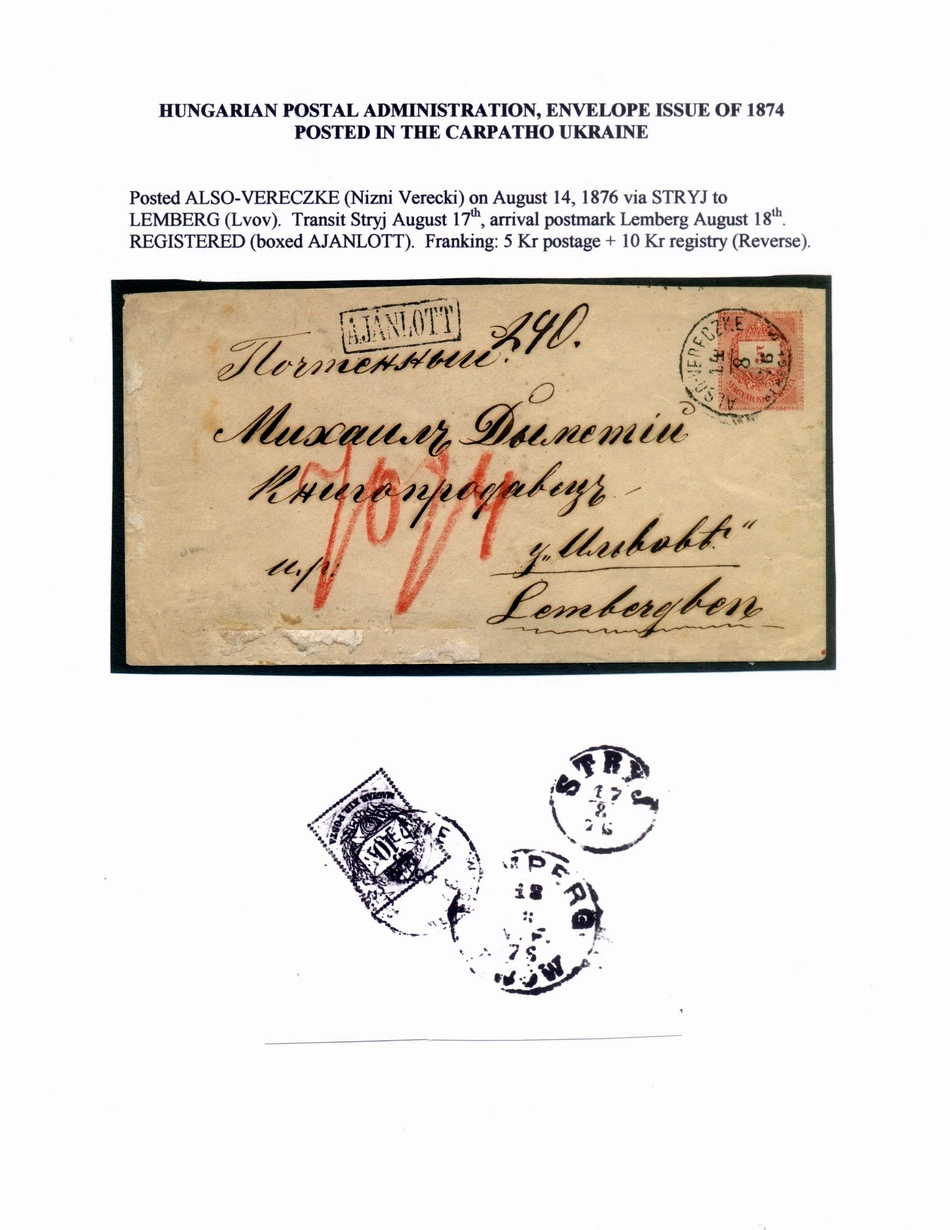 HUNGARIAN POSTAL ADMINISTRATION, ENVELOPE ISSUE OF 1874
POSTED IN THE CARPATHO UKRAINE
Posted ALSO-VERECZKE (Nizni Verecki) on August 14, 1876 via STRYJ to
LEMBERG (Lvov). Transit Stryj August 17th, arrival postmark Lemberg August 18th.
REGISTERED (boxed AJANLOTT). Franking: 5 Kr postage + 10 Kr registry (Reverse).
AJÁNLOTT
240.
Почтенный
ALSO-VERECZKE
14
8
76
5
MAGYAR KIR
Михаилъ Дыметъ
Книгопродавецъ
и.р.
у „Ильвовѣ“
Lembergben
STRYJ
17
8
76
MAGYAR KIR POSTA
18
8
76